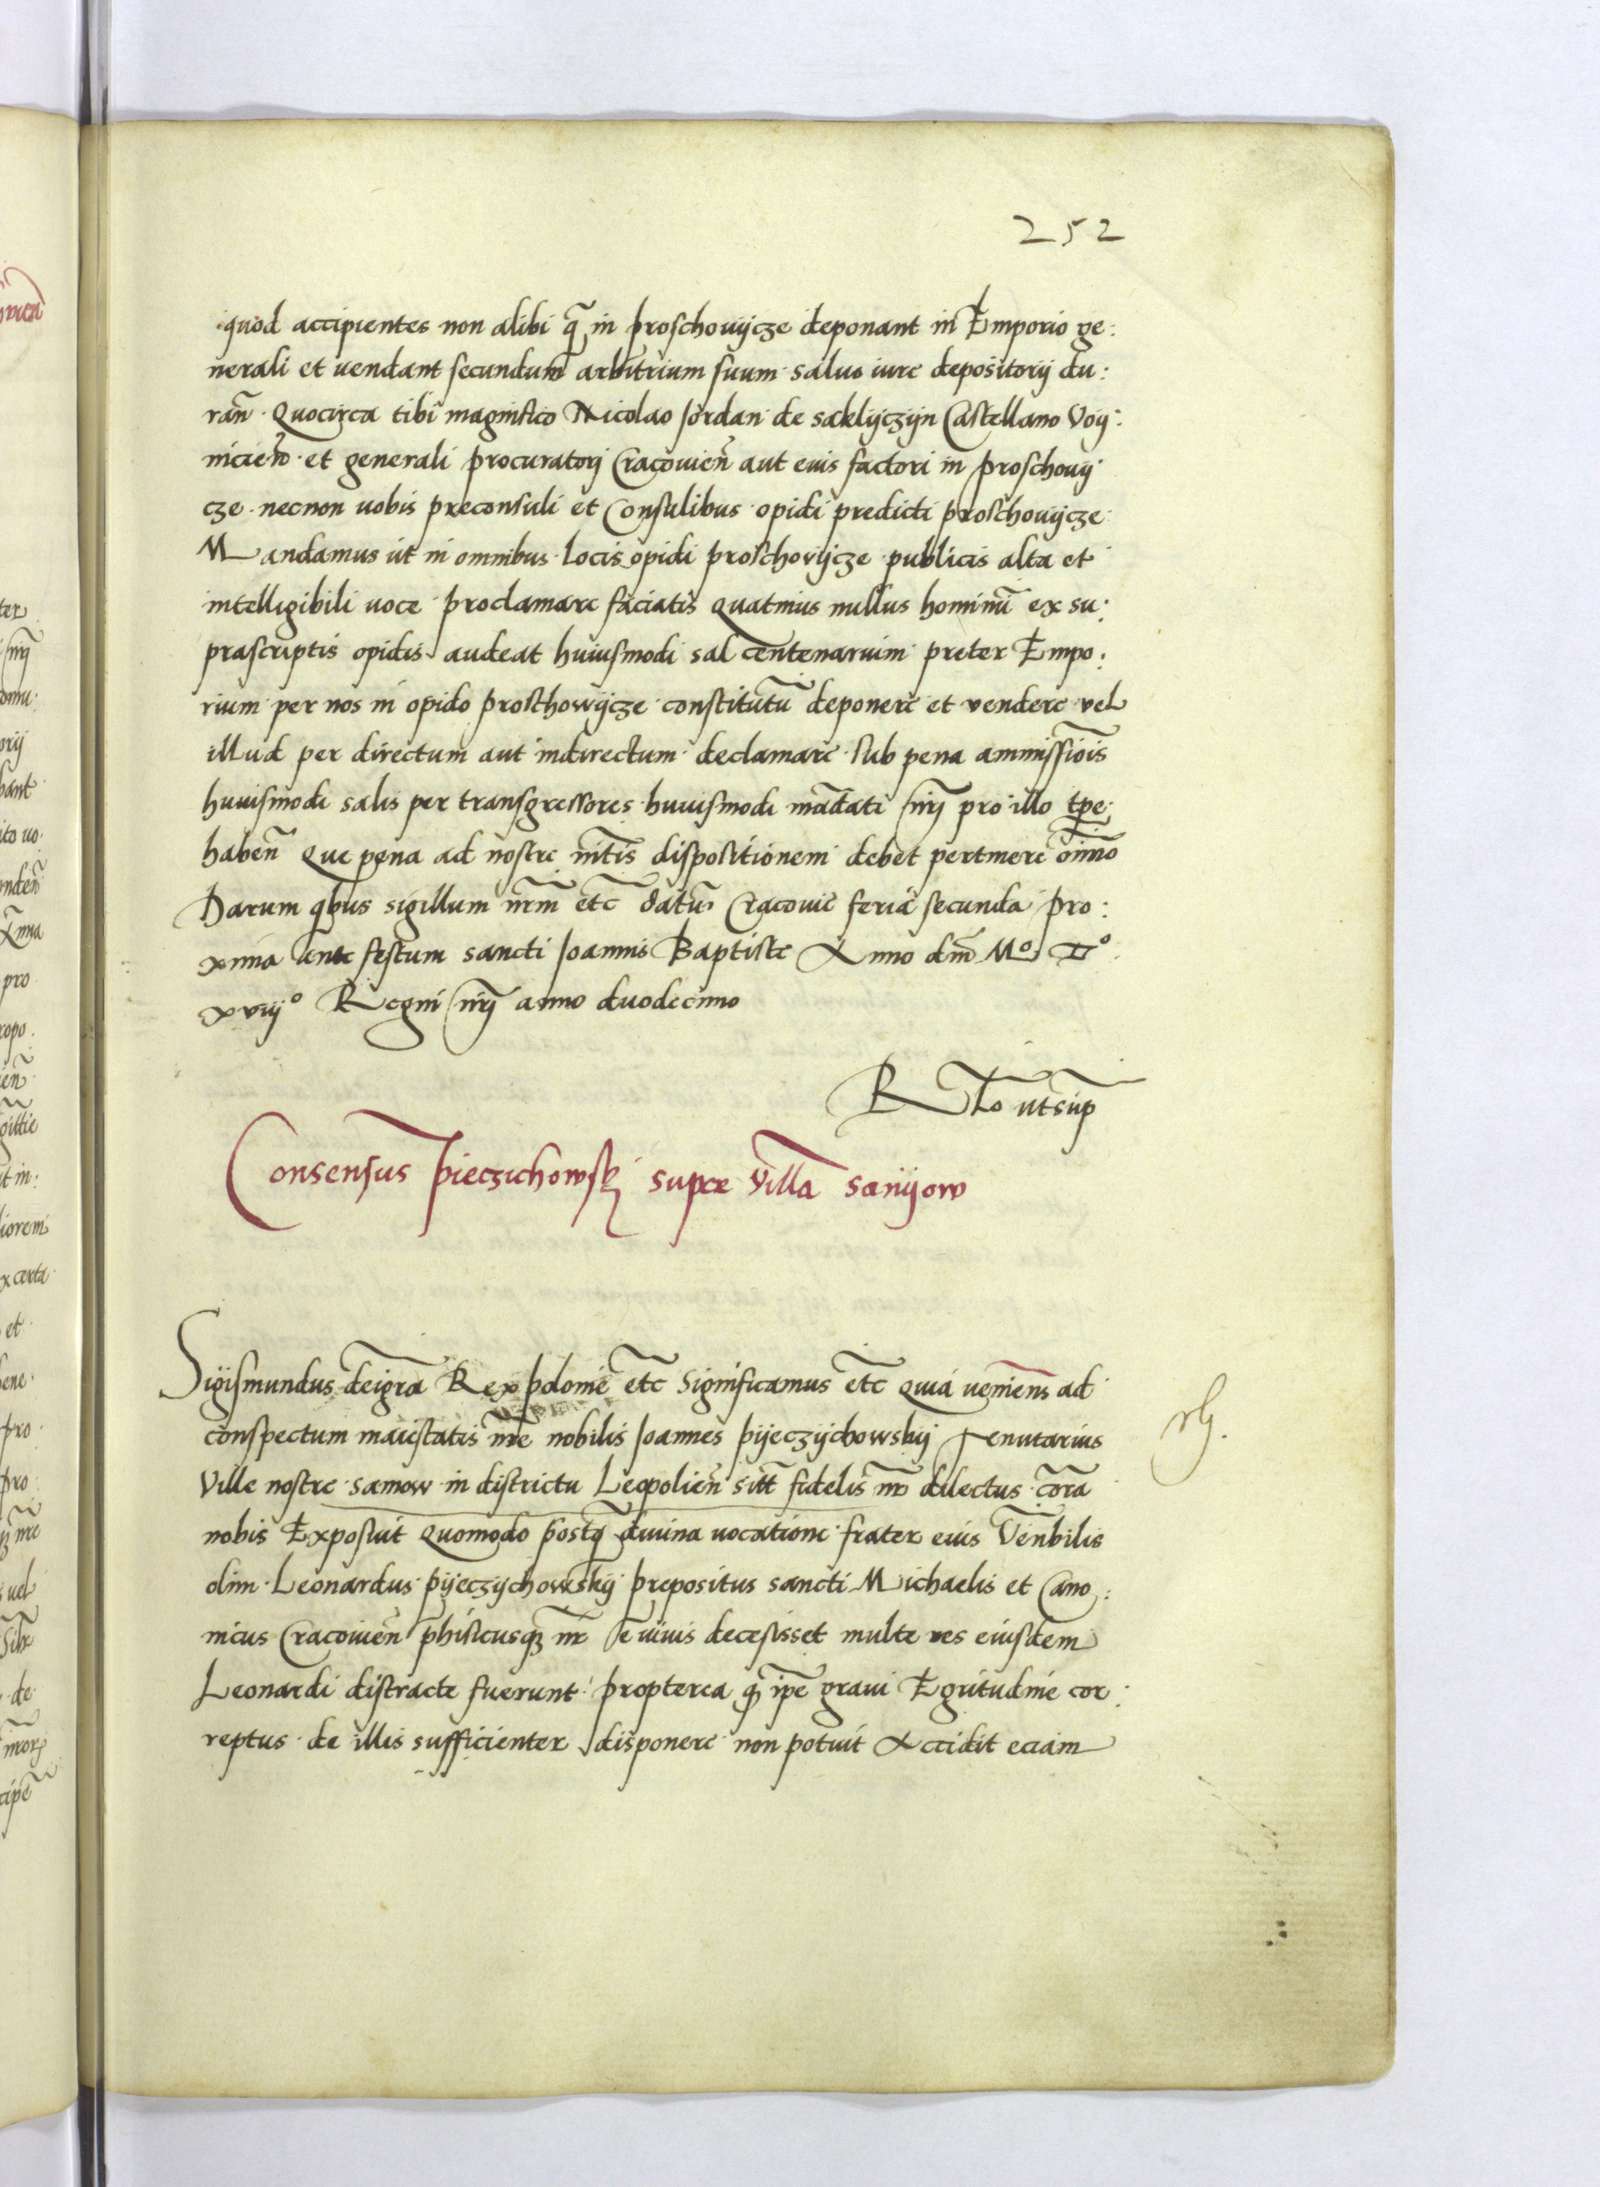 252
quod accipientes non alibi q̃ in proschovijcze deponant in Emporio ge:
nerali et uendant secundum arbitrium suum salvo iure depositorij du:
rañ. Quocirca tibi magnifico Nicolao Jordan de saklijczijn Castellano Voij:
nicieñ et generali procuratorj Cracovieñ aut eius factori in proschovij
cze. necnon uobis preconsuli et Consulibus opidi predicti proschovijcze
Mandamus ut in omnibus locis opidi proschovijcze publicis alta et
intelligibili uoce proclamare faciatis Quatinus nullus hominũ ex su:
prascriptis opidis audeat huiusmodi sal centenarium preter Empo:
rium per nos in opido proschowijcze constitutũ deponere et vendere vel
illud per directum aut indirectum declamare sub pena ammissiois
huiusmodi salis per transgressores huiusmodi mãdati nrj pro illo tpe
habeñ Que pena ad nostre mtis dispositionem debet pertinere oĩno
Harum qbus sigillum nrm etc datũ Cracovie feria secunda pro:
xima ante festum sancti Joannis Baptiste Anno dm̃ Mº Dº
xviijº Regni nrj anno duodecimo
Rlo utsup
Consensus pieczichowskj supra Villa sanijow
Sigismundus deigrã Rex polonie etc Significamus etc Quia ueniens ad
conspectum maiestatis nr̃e nobilis Joannes pijeczijchowskij Tenutarius
Ville nostre saniow in districtu Leopolieñ sitẽ fidelis nr̃ dilectus corã
nobis Exposuit Quomodo postq̃ divina uocatione frater eius Venbilis
olim Leonardus pijeczijchowskij prepositus sancti Michaelis et Cano:
nicus Cracovieñ phisicusqȝ nr̃ e vivis decesisset multe res eiusdem
Leonardi distracte fuerunt propterea qđ ipẽ gravi Egritudine cor:
reptus de illis sufficienter disponere non potuit Accidit eciam